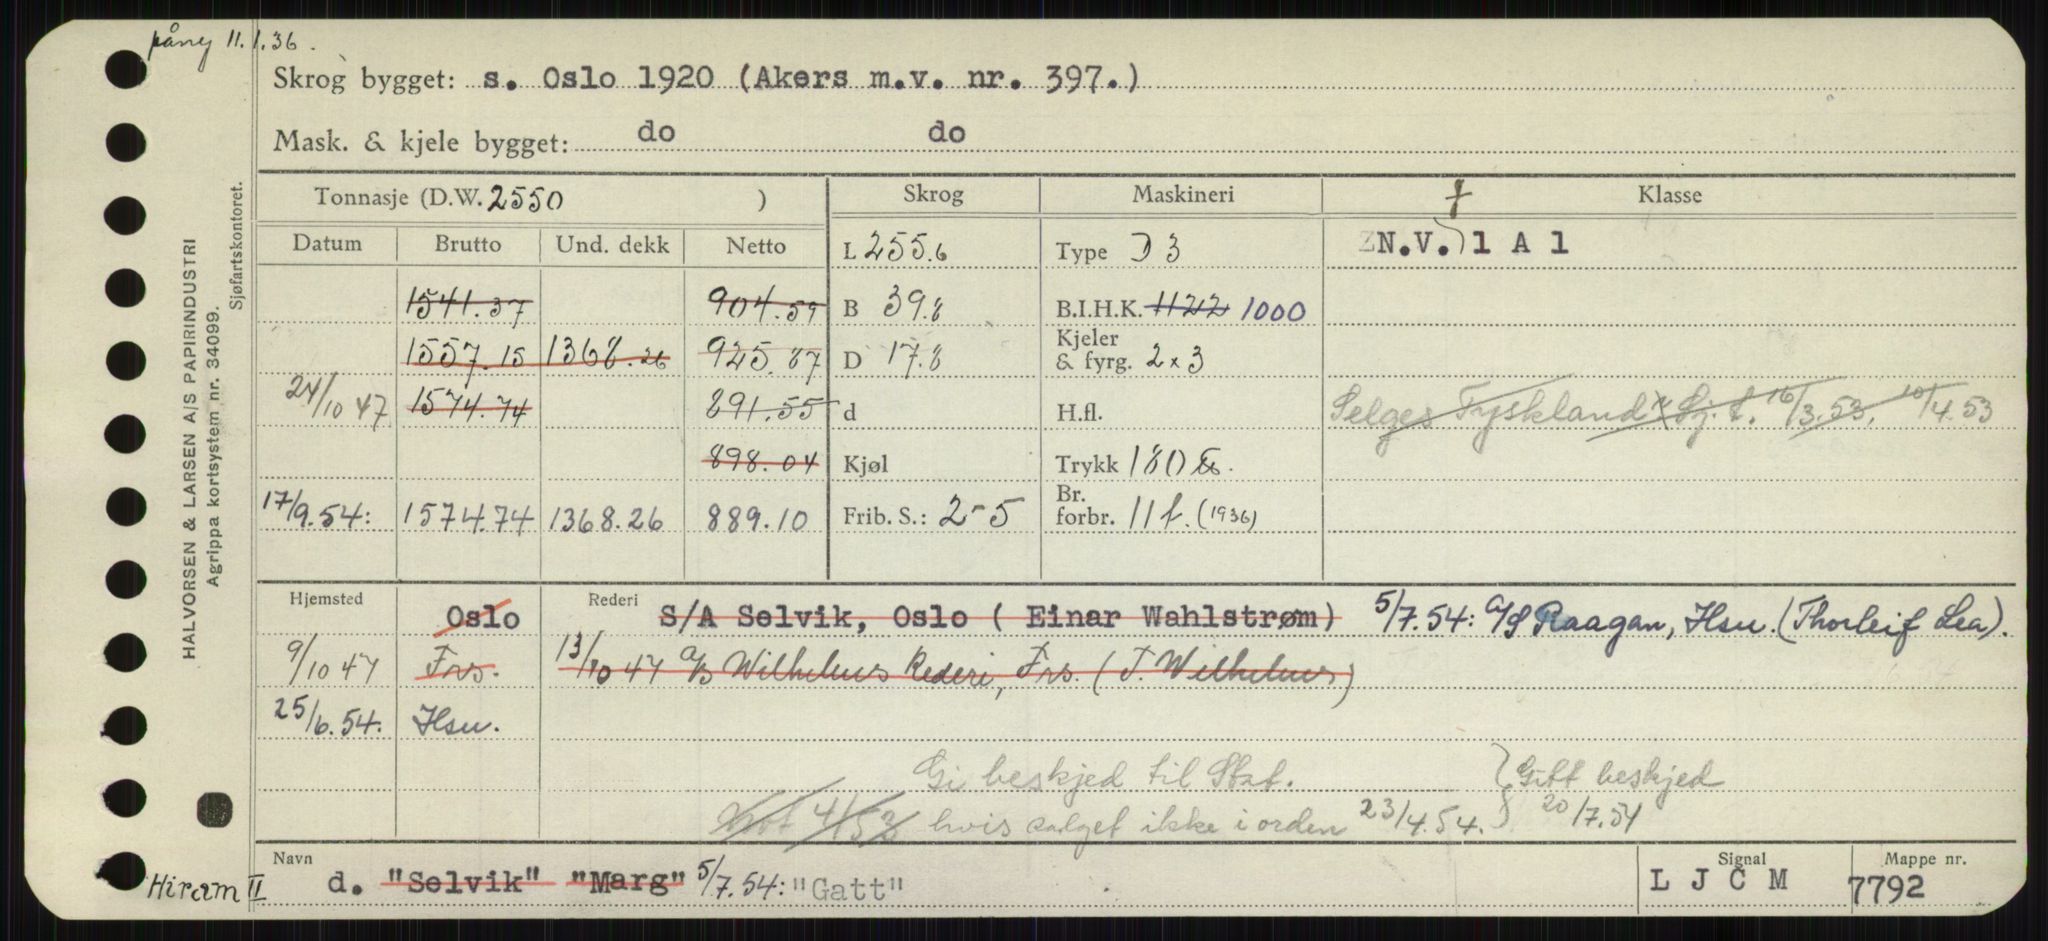 påny 11.1.36.
Skrog bygget: s. Oslo 1920 (Akers m.v. nr. 397.)
Mask. & kjele bygget: do do
Tonnasje (D.W. 2550 ) Skrog Maskineri + Klasse
Datum Brutto Und. dekk Netto L 255.6 Type D 3 N.V. 1 A 1
1541.37 904.59 B 39.8 B.I.H.K. 1122 1000
1557.15 1368.26 925.87 D 17.8 Kjeler & fyrg. 2 x 3
24/10 47 1574.74 891.55 d H.fl. Selges Tyskland 16/3.53, 10/4.53
898.04 Kjøl Trykk 180
17/9.54: 1574.74 1368.26 889.10 Frib. S.: 2-5 Br. forbr. 11 t. (1936)
Hjemsted Oslo Rederi S/A Selvik, Oslo ( Einar Wahlstrøm) 5/7.54: A/S Raagan, Hsu. (Thorleif Lea).
9/10 47 Frs. 13/10 47 Wilhelms Rederi, Frs. (T. Wilhelms)
25/6.54. Hsu.
Gi beskjed til Stat. } Gitt beskjed
4/53 hvis salget ikke i orden 23/4.54. 20/7.54
Navn Signal Mappe nr.
Hiram II d. "Selvik" "Marg" 5/7.54: "Gatt" L J C M 7792
HALVORSEN & LARSEN A/S PAPIRINDUSTRI
Agrippa kortsystem nr. 34099.
Sjøfartskontoret.